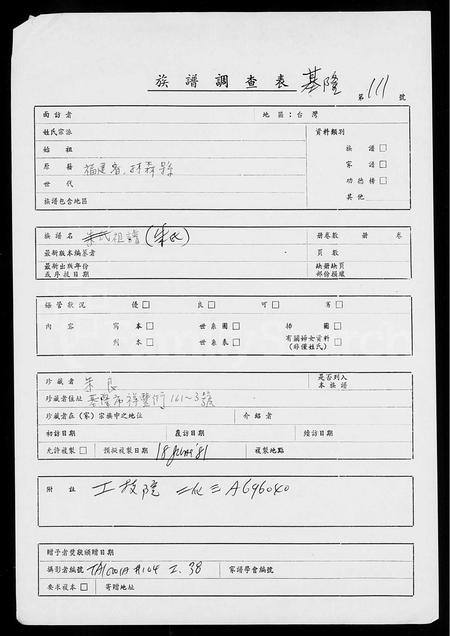 族譜調查表 基隆 第 111 號
面訪者 地區：台灣
姓氏宗派 資料類別
始祖 族譜 □
原籍 福建省．林森縣 家譜 □
世代 功德榜 □
族譜包含地區 其他
族譜名 朱氏祖譜 (朱氏) 册卷數 册 卷
最新版本編纂者 頁數
最新出版年份 缺册缺頁
或序拔日期 部份損壞
保管狀況 優 □ 良 □ 可 □ 有 □
內容 寫本 □ 世系圖 □ 插圖 □
刊本 □ 世系表 □ 有關婦女資料 □
(非僅姓氏)
珍藏者 朱良 是否列入
本族譜
珍藏者住址 基隆市祥豐街161~3號
珍藏者在(家)宗族中之地位 介紹者
初訪日期 覆訪日期 續訪日期
允許複製 □ 攝擬複製日期 18 June '81 複製地點
附註 工技院 A696040
贈予者獎狀頒贈日期
攝影者編號 #104 I. 38 家譜學會編號
要求複本 □ 寄贈地址